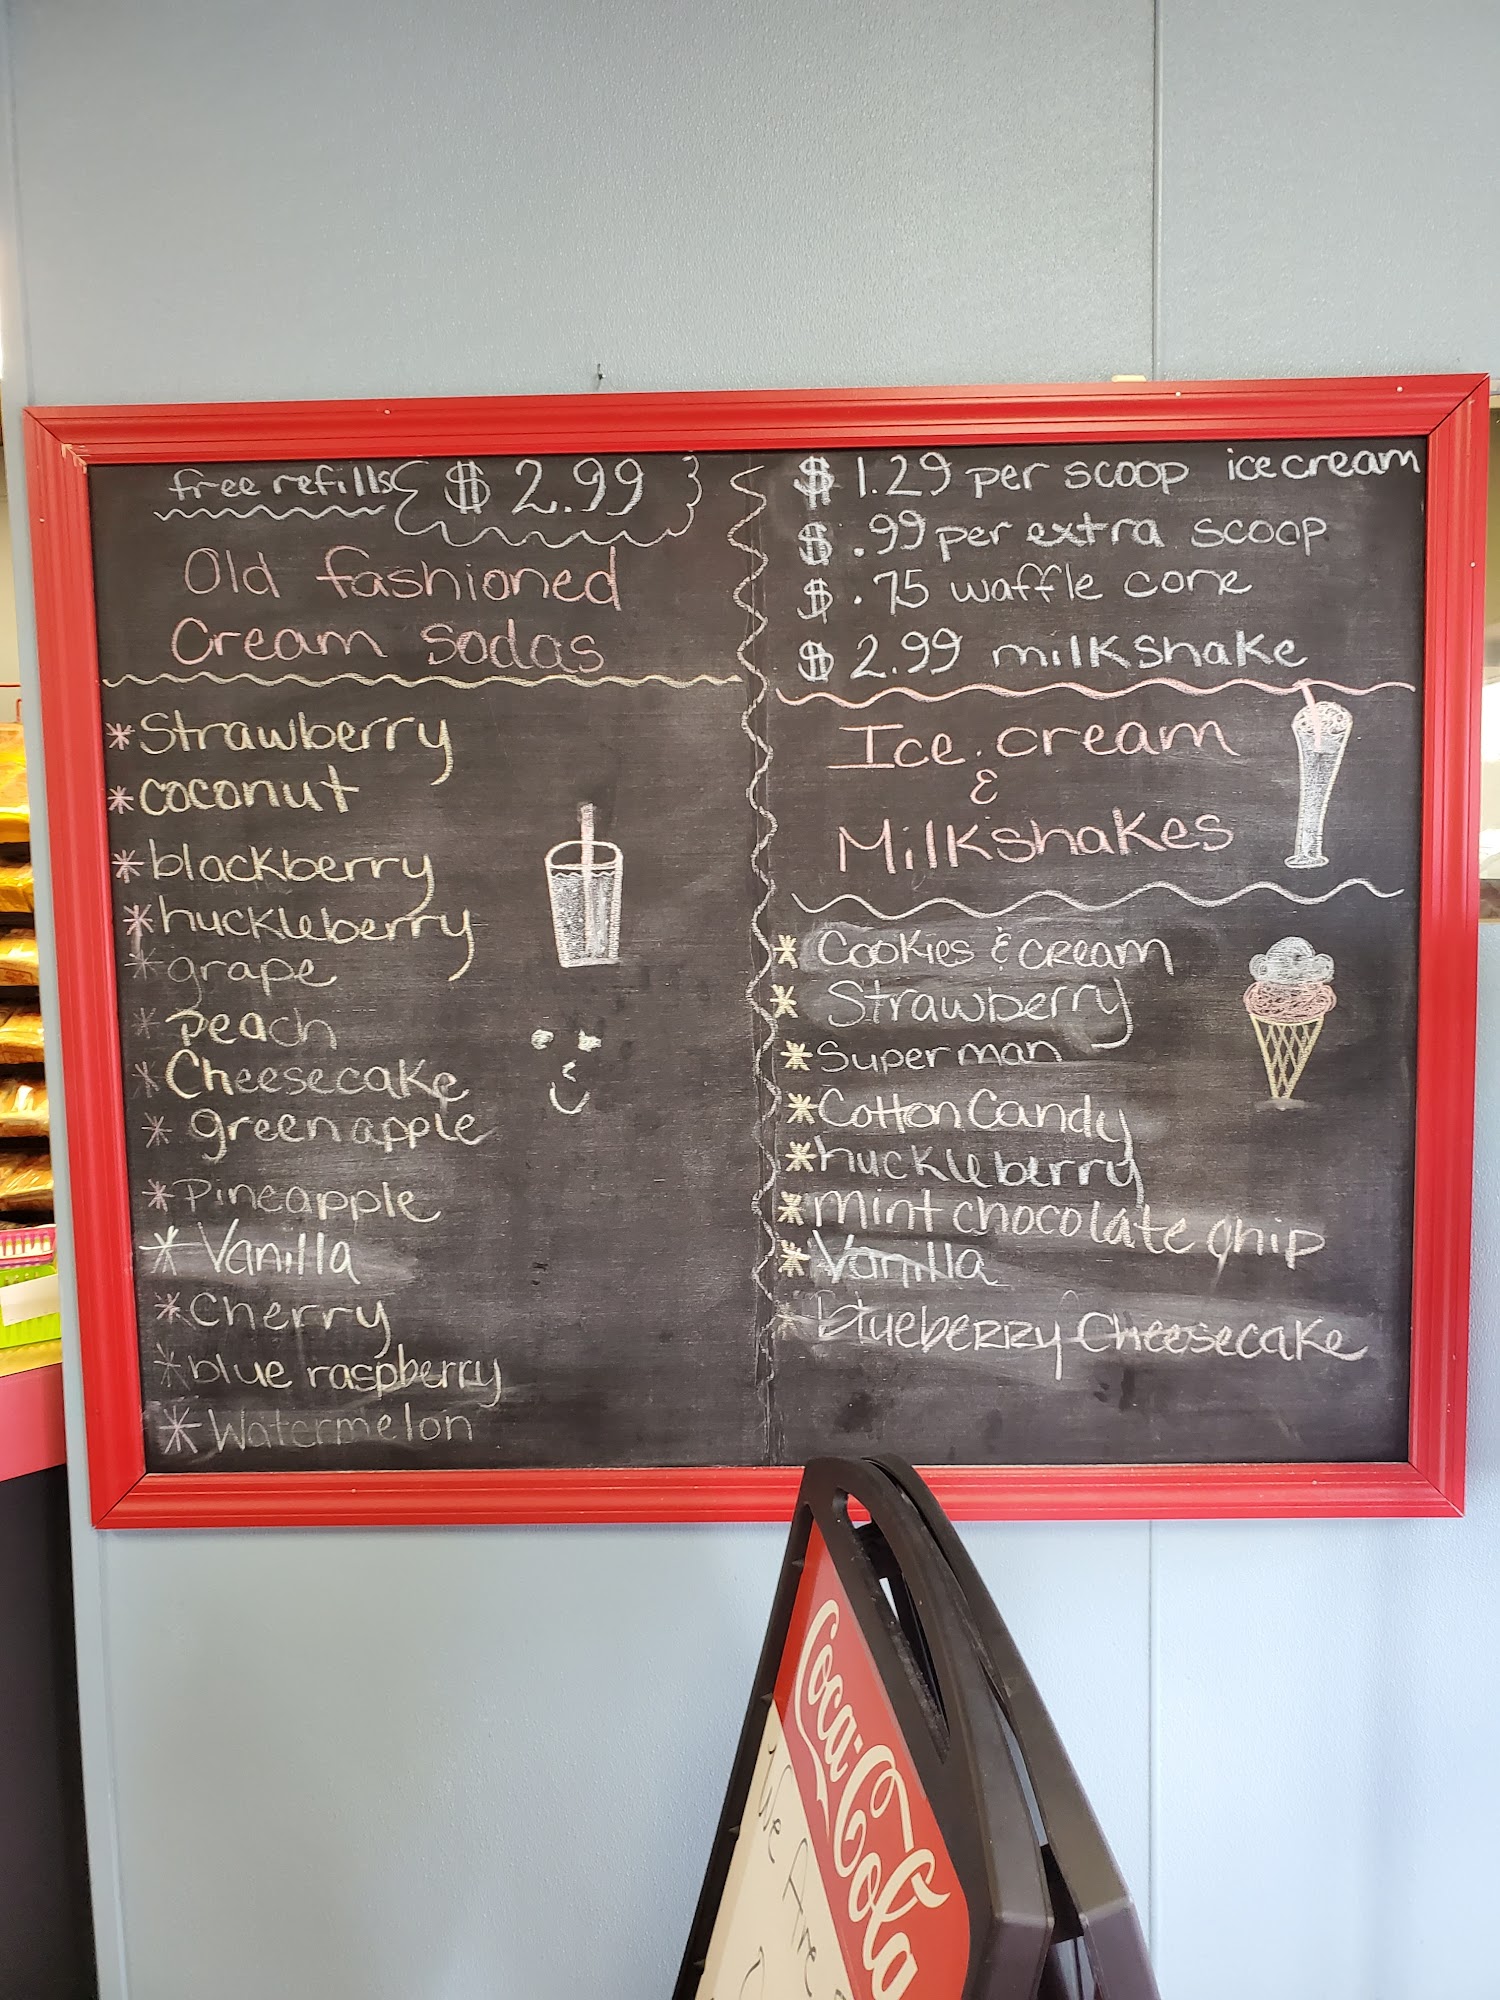 free refills $ 2.99
Old fashioned
Cream sodas
* Strawberry
* coconut
* blackberry
* huckleberry
* grape
* peach
* Cheesecake
* green apple
* Pineapple
* Vanilla
* Cherry
* blue raspberry
* Watermelon
$ 1.29 per scoop ice cream
$ .99 per extra scoop
$ .75 waffle cone
$ 2.99 milkshake
Ice cream
&
Milkshakes
* Cookies & cream
* Strawberry
* Superman
* Cotton Candy
* huckleberry
* mint chocolate chip
* Vanilla
* blueberry Cheesecake
Coca-Cola
We Are